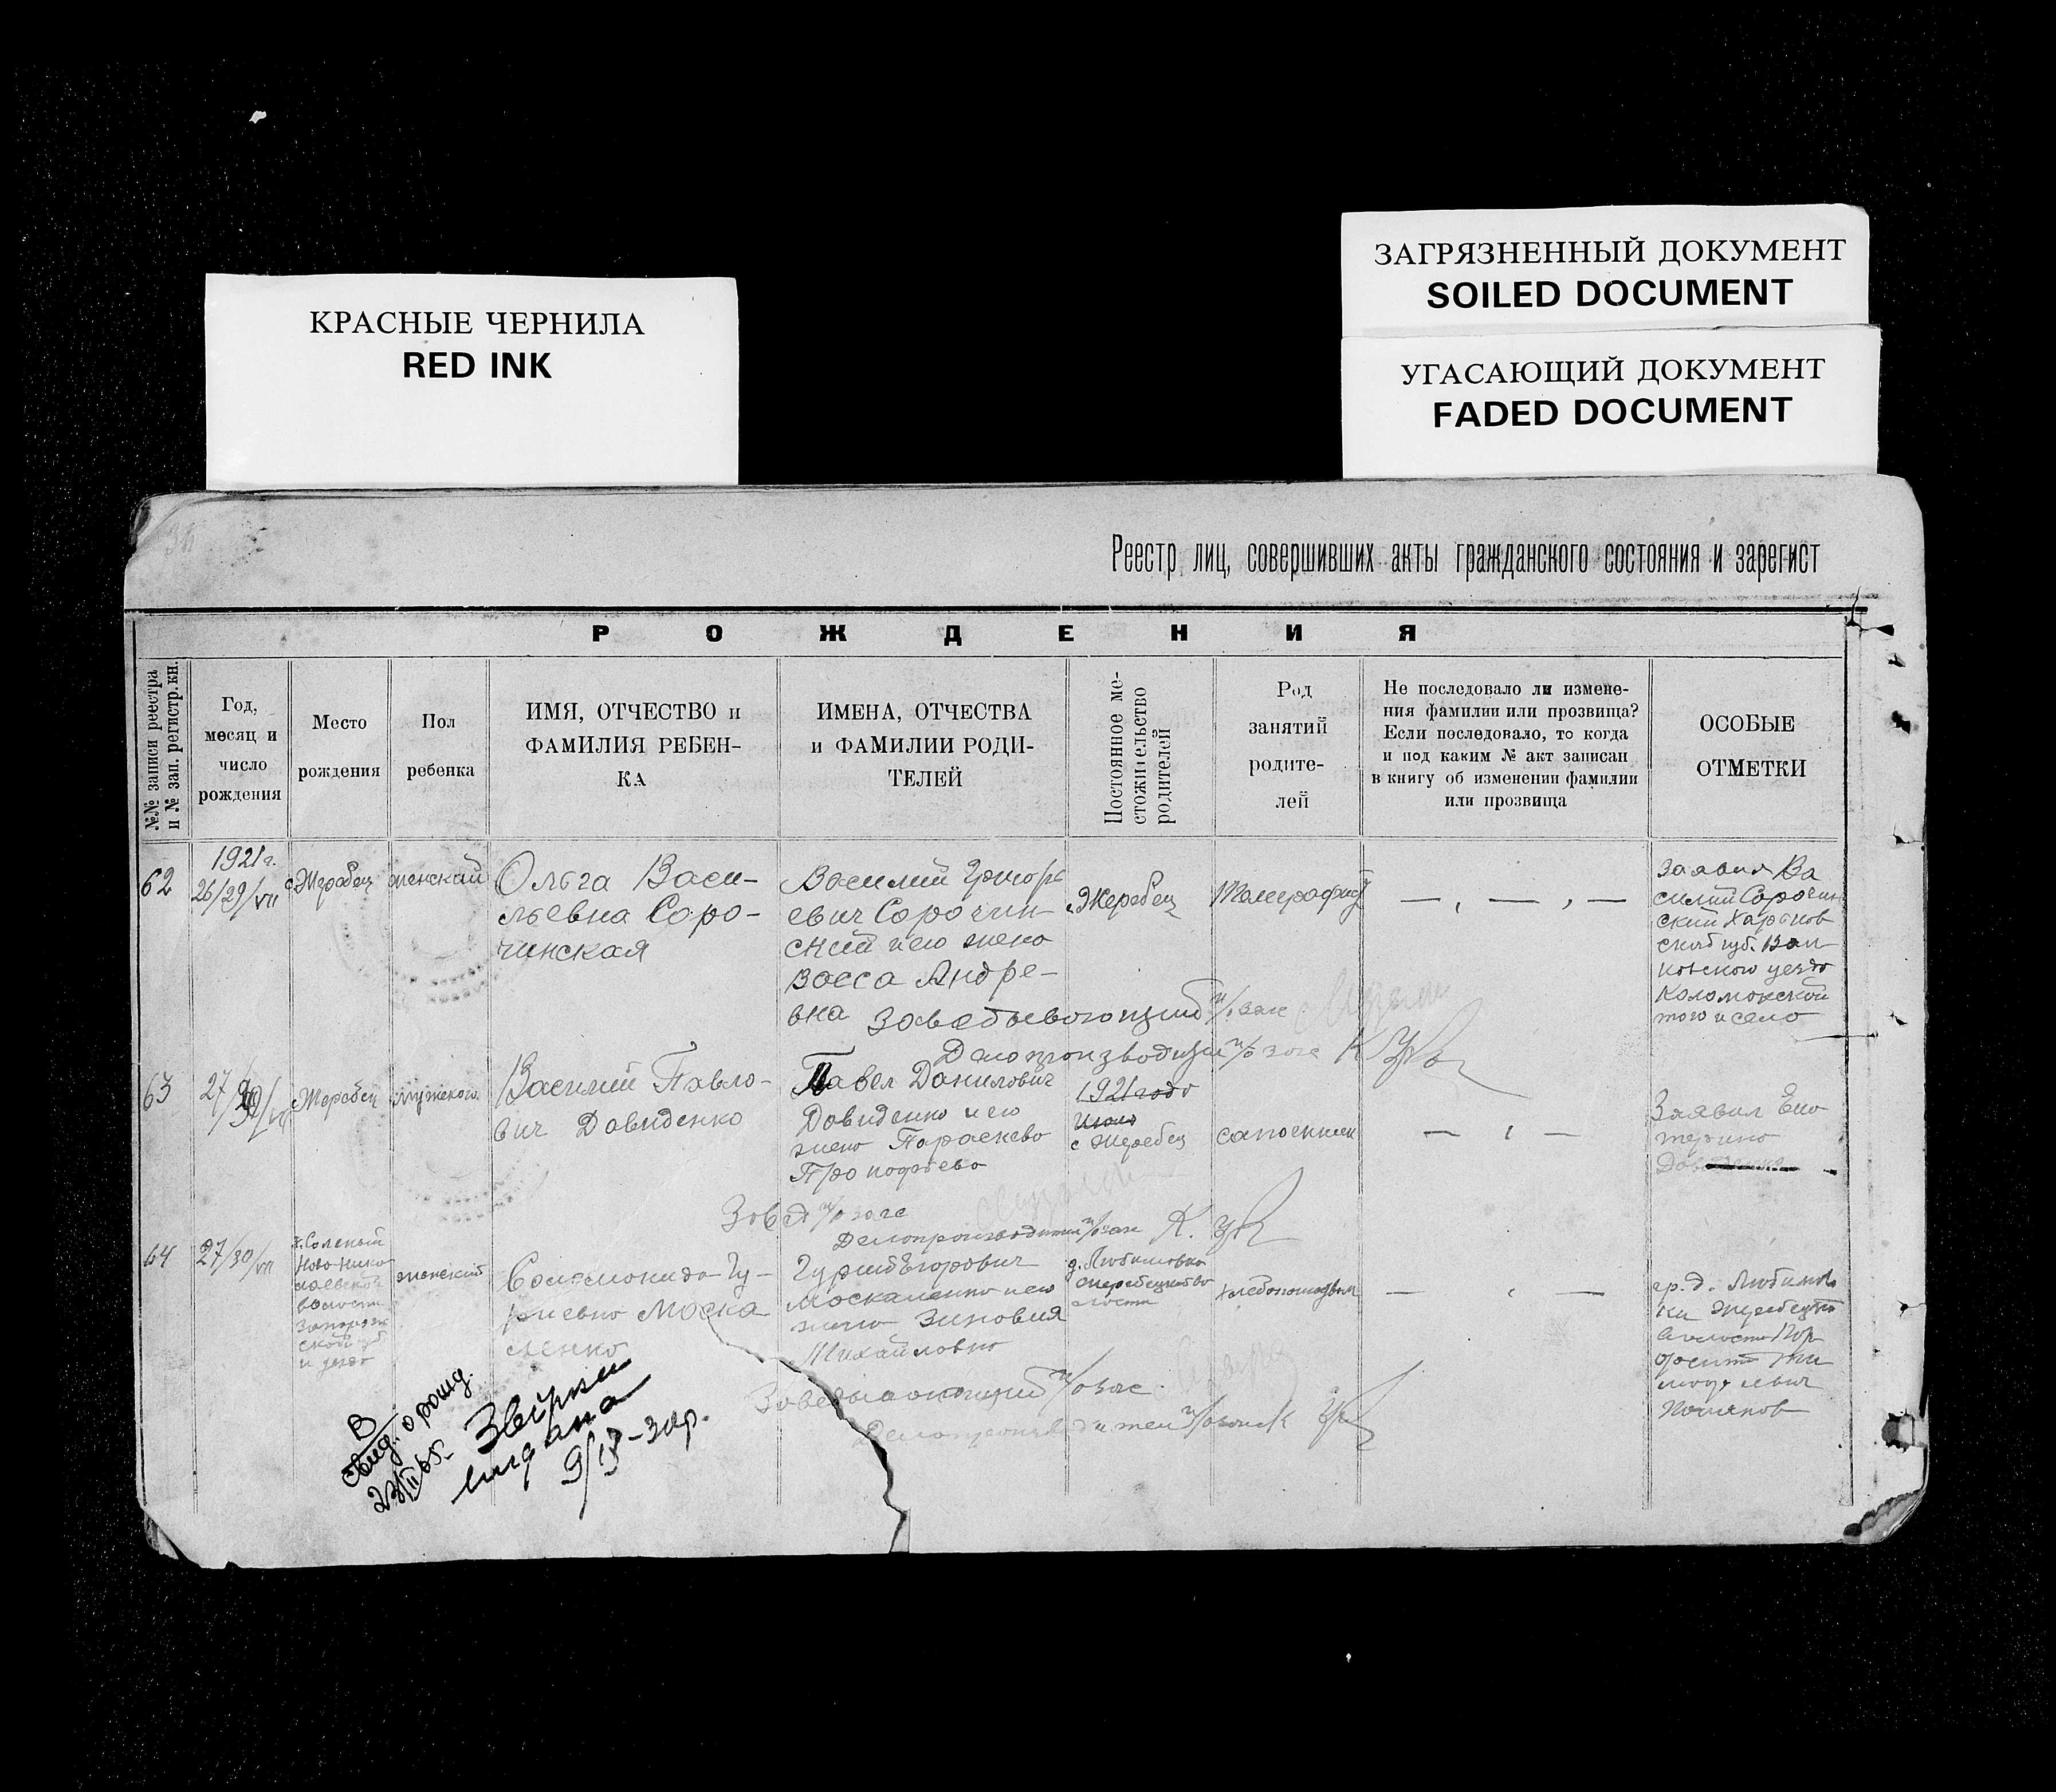 ЗАГРЯЗНЕННЫЙ ДОКУМЕНТ
SOILED DOCUMENT
КРАСНЫЕ ЧЕРНИЛА
RED INK
УГАСАЮЩИЙ ДОКУМЕНТ
FADED DOCUMENT
Реестр лиц, совершивших акты гражданского состояния и зарегист
РОЖДЕНИЯ
№№ записи реестра
и № зап. регистр. кн.
Год,
месяц и
число
рождения
Место
рождения
Пол
ребенка
ИМЯ, ОТЧЕСТВО и
ФАМИЛИЯ РЕБЕН-
КА
ИМЕНА, ОТЧЕСТВА
и ФАМИЛИИ РОДИ-
ТЕЛЕЙ
Постоянное ме-
стожительство
родителей
Род
занятий
родите-
лей
Не последовало ли измене-
ния фамилии или прозвища?
Если последовало, то когда
и под каким № акт записан
в книгу об изменении фамилии
или прозвища
ОСОБЫЕ
ОТМЕТКИ
62
1921 г.
26/29/VII
с Жеребец
женский
Ольга Васи-
льевна Соро-
чинская
Василий Григорь
евич Сорочин-
ский и его жена
Васса Андре-
вна
с. Жеребец
Телеграфист
— , — , —
Заявил Ва
силий Сорочин
ский Харьков
ской губ. Вал
ковского уезда
Коломокской
того и села
Заведывающий п/о загс
Делопроизводит п/о загс К
63
27/
с Жеребец
мужского
Василий Павло-
вич Давиденко
Павел Данилович
Давиденко и его
жена Параскева
Прокофьева
1921 года
Июля
с Жеребец
сапожник
— , —
Заявил Ека
терина
Зав п/о загс
Делопроизводит п/о загс К.
64
27/30/VII
х. Соленый
Ново-Нико
лаевской
волости
Запорож
ской губ
и уезда
женский
Соломонида Гу-
риевна Моска
ленко
Гурий Егорович
Москаленко и его
жена Зиновия
Михайловна
д. Любимовка
Жеребецкой во
лости
хлебопашцы
— , —
гр. д. Любимов
ки Жеребецкой
волости
Заведывающий п/о загс
Делопроизводител п/о загс К
В
свид. о рожд.
23/II 65